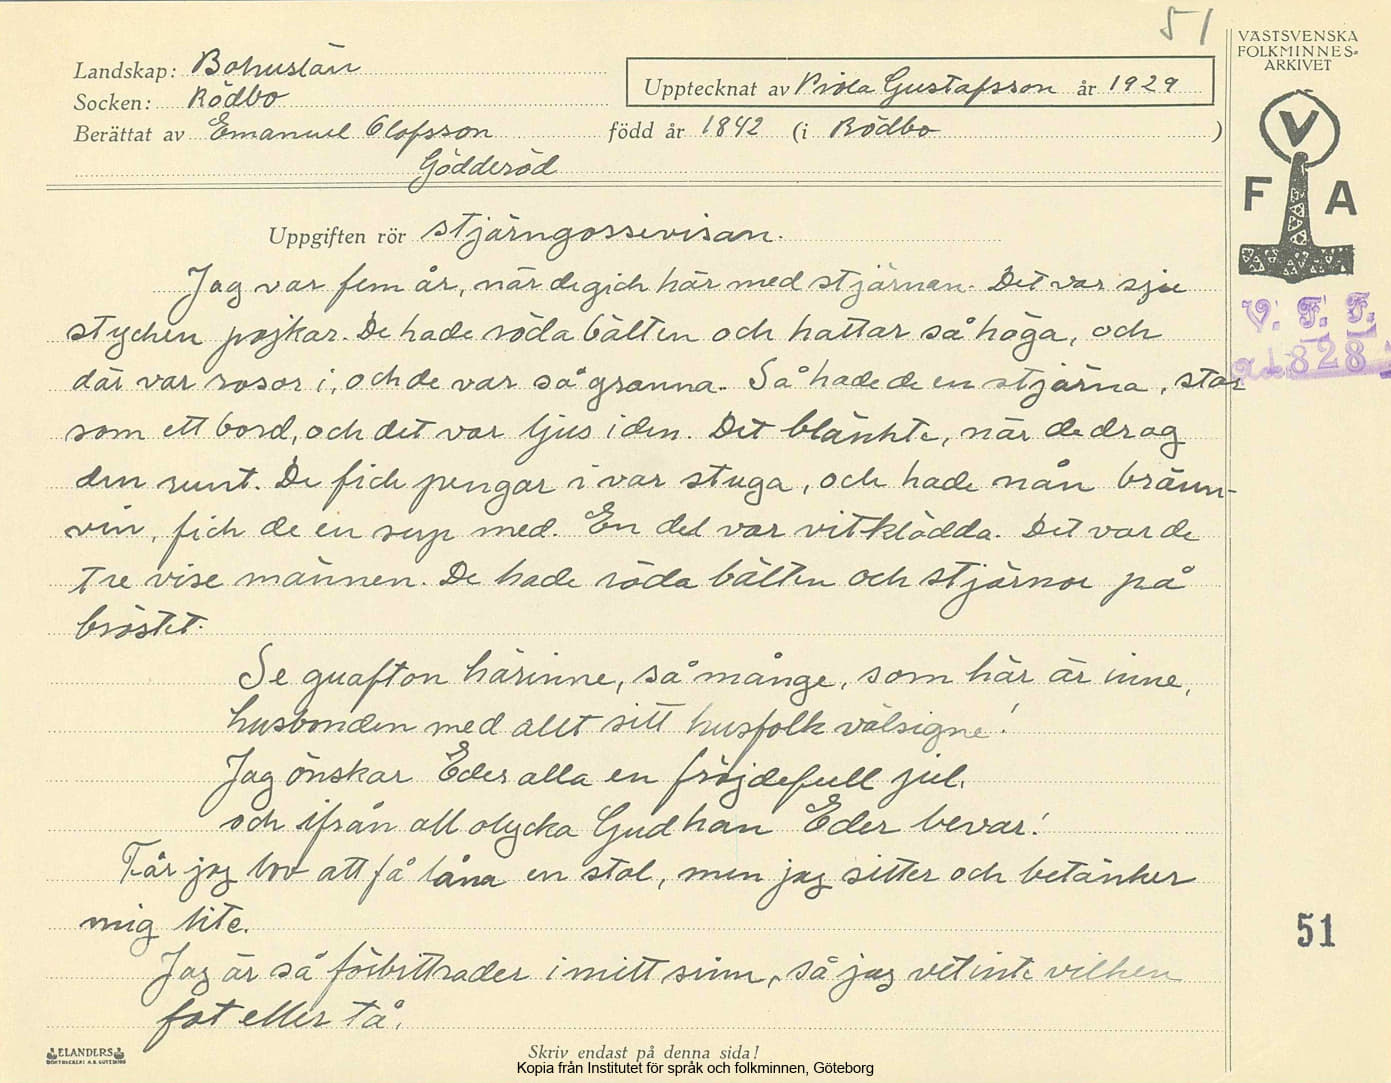 51
VÄSTSVENSKA
FOLKMINNES-
ARKIVET
Landskap: Bohuslän
Socken: Rödbo
Upptecknat av Viola Gustafsson år 1929
Berättat av Emanuel Olofsson född år 1842 (i Rödbo )
Gödderöd
V
F A
Uppgiften rör stjärngossevisan.
Jag var fem år, när de gick här med stjärnan. Det var sju
V. F. F.
stycken pojkar. De hade röda bälten och hattar så höga, och
1828
där var rosor i, och de var så granna. Så hade de en stjärna, stor
som ett bord, och det var ljus i den. Det blänkte, när de drog
den runt. De fick pengar i var stuga, och hade nån bränn-
vin, fick de en sup med. En del var vitklädda. Det var de
tre vise männen. De hade röda bälten och stjärnor på
bröstet.
Se guafton härinne, så månge, som här är inne,
husbonden med allt sitt husfolk välsigne!
Jag önskar Eder alla en fröjdefull jul,
och ifrån all olycka Gud han Eder bevar!
Får jag lov att få låna en stol, men jag sitter och betänker
mig lite.
51
Jag är så förbittrader i mitt sinn, så jag vet inte vilken
fot eller tå.
ELANDERS
BOKTRYCKERI A.B. GÖTEBORG
Skriv endast på denna sida!
Kopia från Institutet för språk och folkminnen, Göteborg